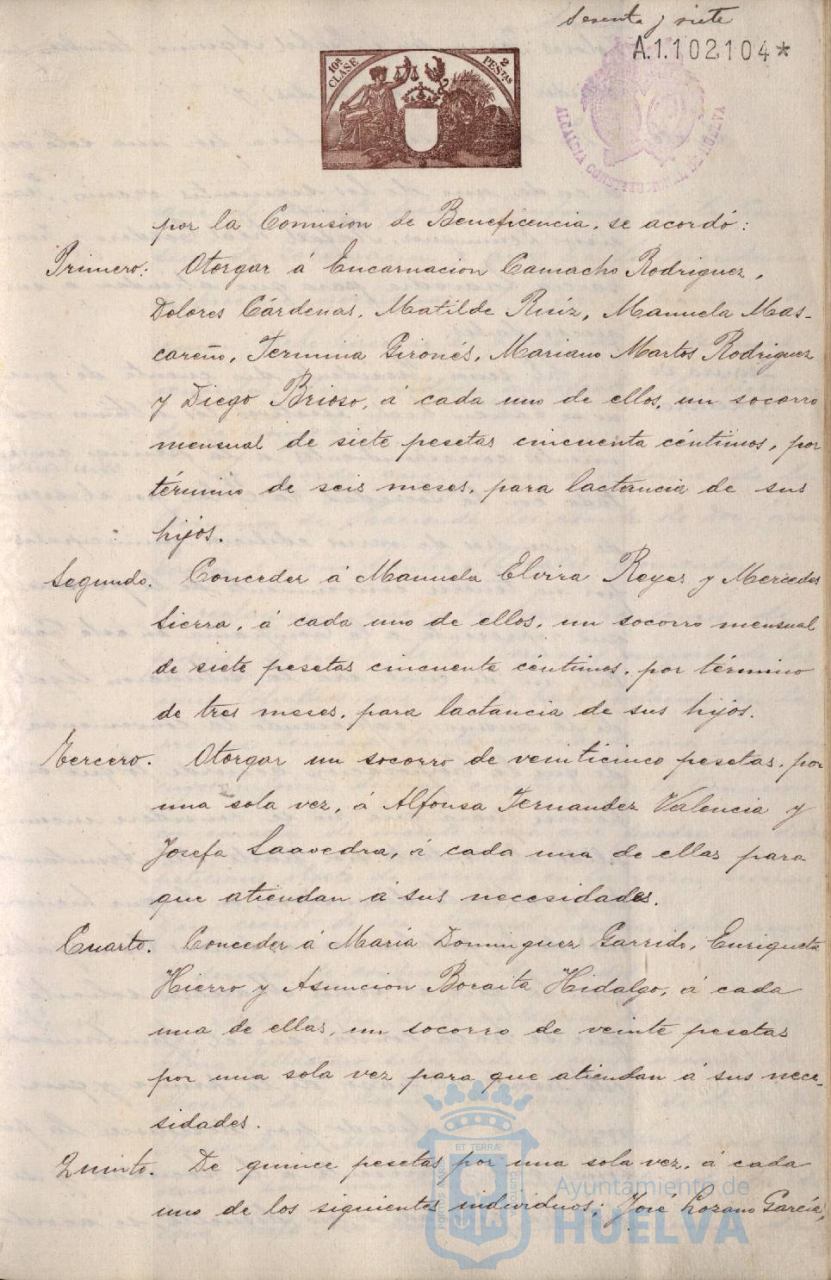 Sesenta y siete
A.1.102104*
10ª CLASE
2 PESTAS
ALCALDIA CONSTITUCIONAL DE HUELVA
por la Comision de Beneficencia, se acordó:
Primero: Otorgar á Encarnacion Camacho Rodriguez,
Dolores Cárdenas, Matilde Ruíz, Manuela Mas-
careño, Fermina Gironés, Mariano Martos Rodriguez
y Diego Brioso, á cada uno de ellos, un socorro
mensual de siete pesetas cincuenta céntimos, por
término de seis meses, para lactancia de sus
hijos.
Segundo. Conceder á Manuela Elvira Reyes y Mercedes
Sierra, á cada uno de ellos, un socorro mensual
de siete pesetas cincuenta céntimos, por término
de tres meses, para lactancia de sus hijos.
Tercero. Otorgar un socorro de veinticinco pesetas, por
una sola vez, á Alfonsa Fernandez Valencia y
Josefa Saavedra, á cada una de ellas para
que atiendan á sus necesidades.
Cuarto. Conceder á María Dominguez Garrido, Enriqueta
Hierro y Asuncion Boraita Hidalgo, á cada
una de ellas, un socorro de veinte pesetas
por una sola vez para que atiendan á sus nece-
sidades.
Quinto. De quince pesetas por una sola vez, á cada
uno de los siguientes individuos; José Lozano García,
ET TERRÆ
Ayuntamiento de
HUELVA